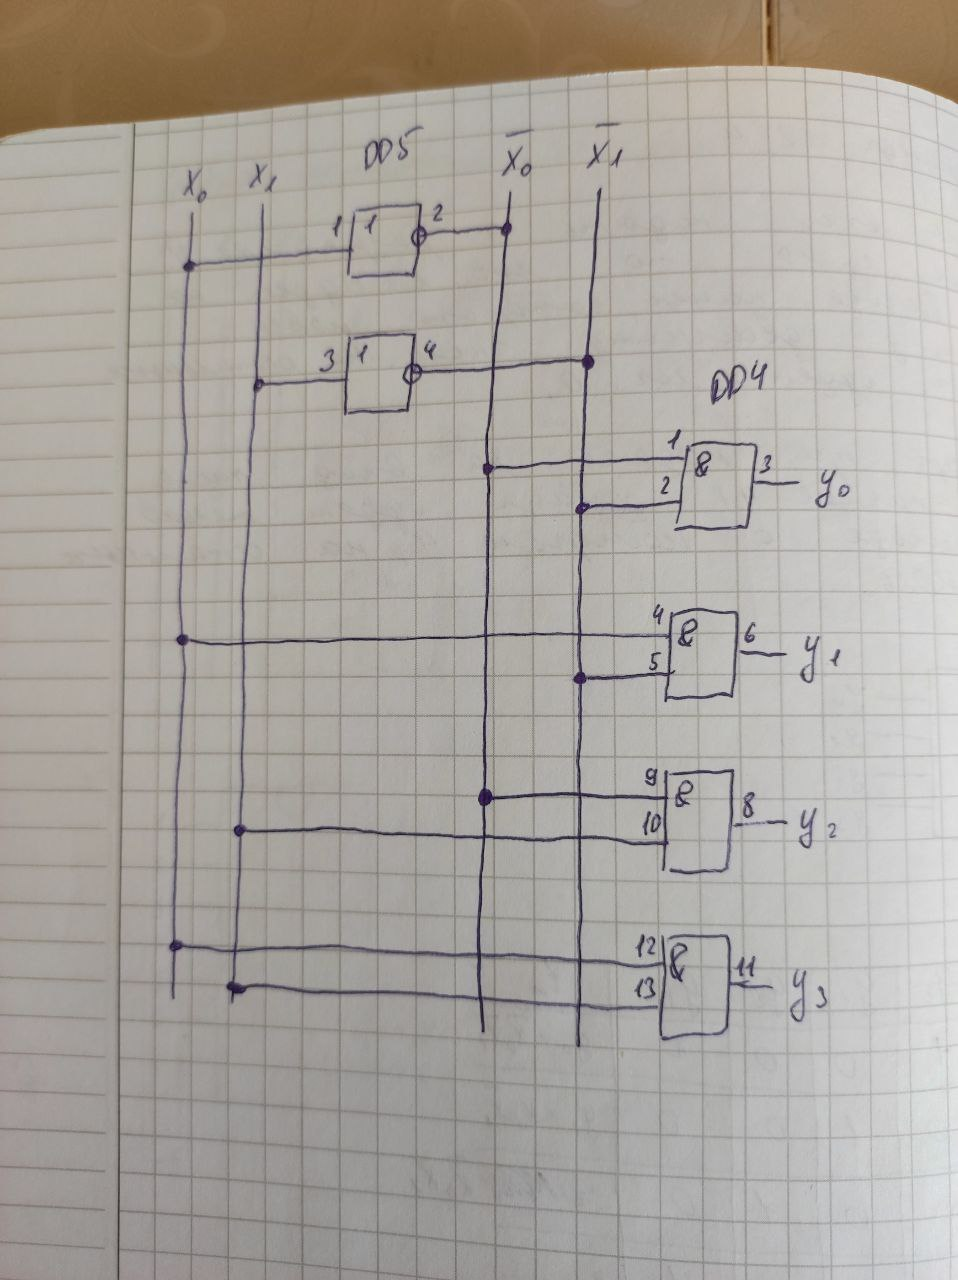 X₀ X₁ DD5 X̅₀ X̅₁
1 1 2
3 1 4
DD4
1 & 3 y₀
2
4 & 6 y₁
5
9 & 8 y₂
10
12 & 11 y₃
13